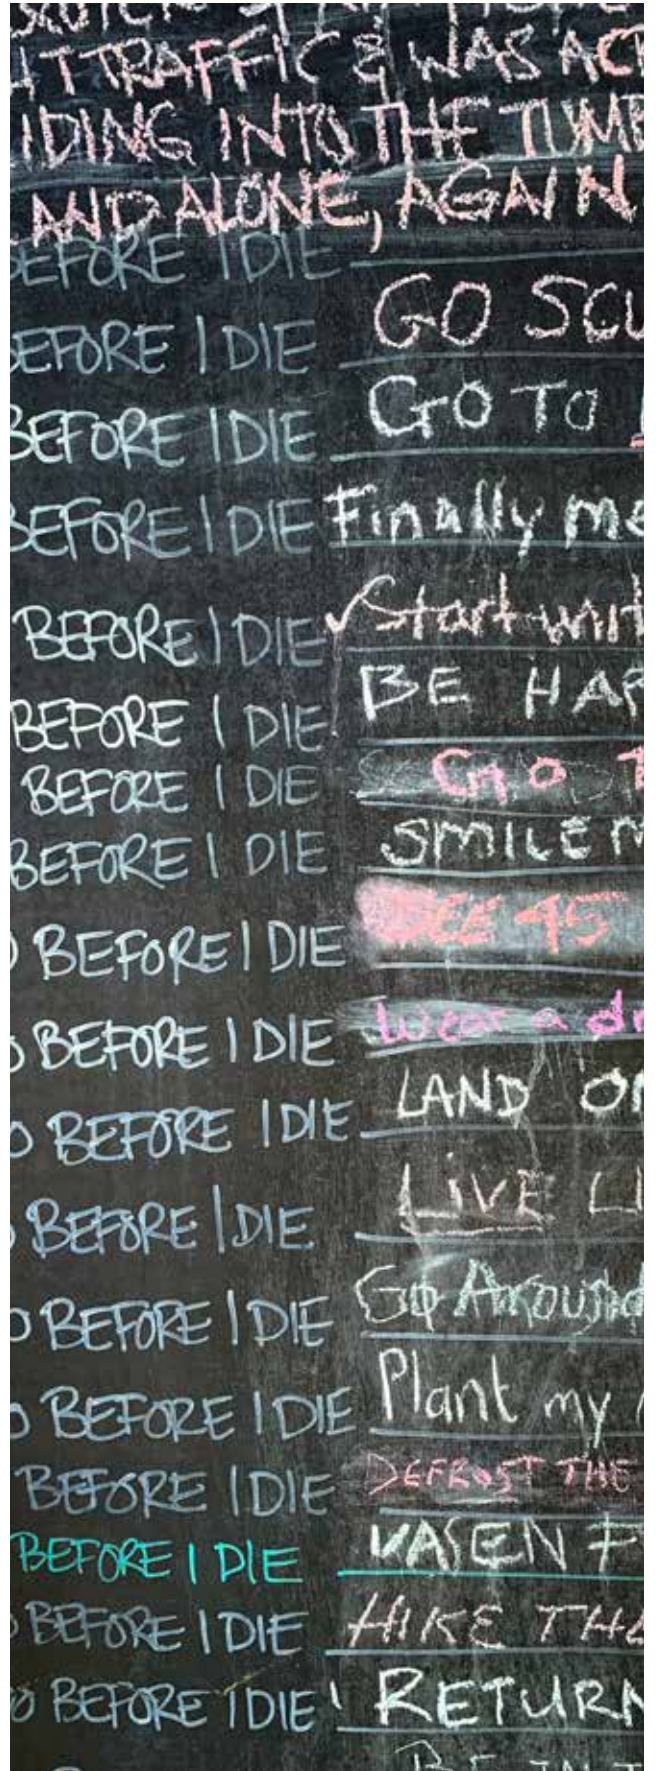 TTRAFFIC & WAS AC
IDING INTO THE TUMB
AND ALONE, AGAIN
BEFORE I DIE
BEFORE I DIE GO SCU
BEFORE I DIE GO TO
BEFORE I DIE Finally me
BEFORE I DIE Start wit
BEFORE I DIE BE HAP
BEFORE I DIE GO T
BEFORE I DIE SMILE M
O BEFORE I DIE SEE 45
O BEFORE I DIE Wear a dr
O BEFORE I DIE LAND ON
O BEFORE I DIE LiVE LI
O BEFORE I DIE Go Around
O BEFORE I DIE Plant my
BEFORE I DIE DEFROST THE
BEFORE I DIE VASEN F
O BEFORE I DIE HIKE THE
O BEFORE I DIE RETURN
BE IN